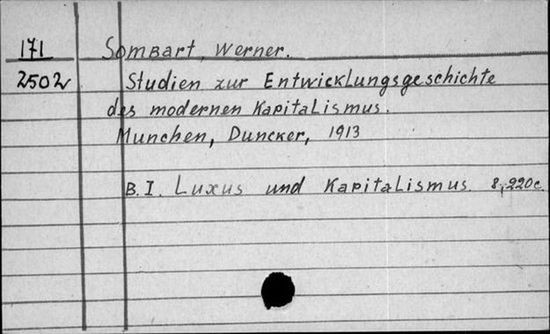 171
Sombart, Werner.
2502
Studien zur Entwicklungsgeschichte
des modernen Kapitalismus.
Munchen, Duncker, 1913
B. I. Luxus und Kapitalismus 8, 220c.